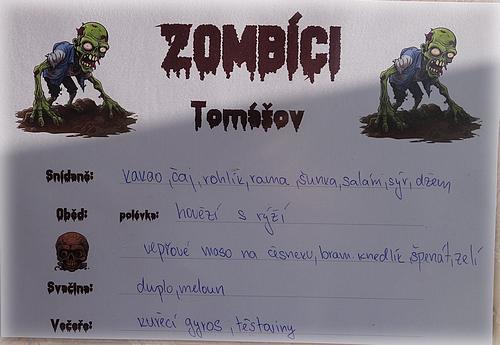 ZOMBÍCI
Tomášov
Snídaně: kakao, čaj, rohlík, rama, šunka, salám, sýr, džem
Oběd: polévka: hovězí s rýží
vepřové maso na česneku, bram. knedlík, špenát, zelí
Svačina: duplo, meloun
Večeře: kuřecí gyros, těstoviny